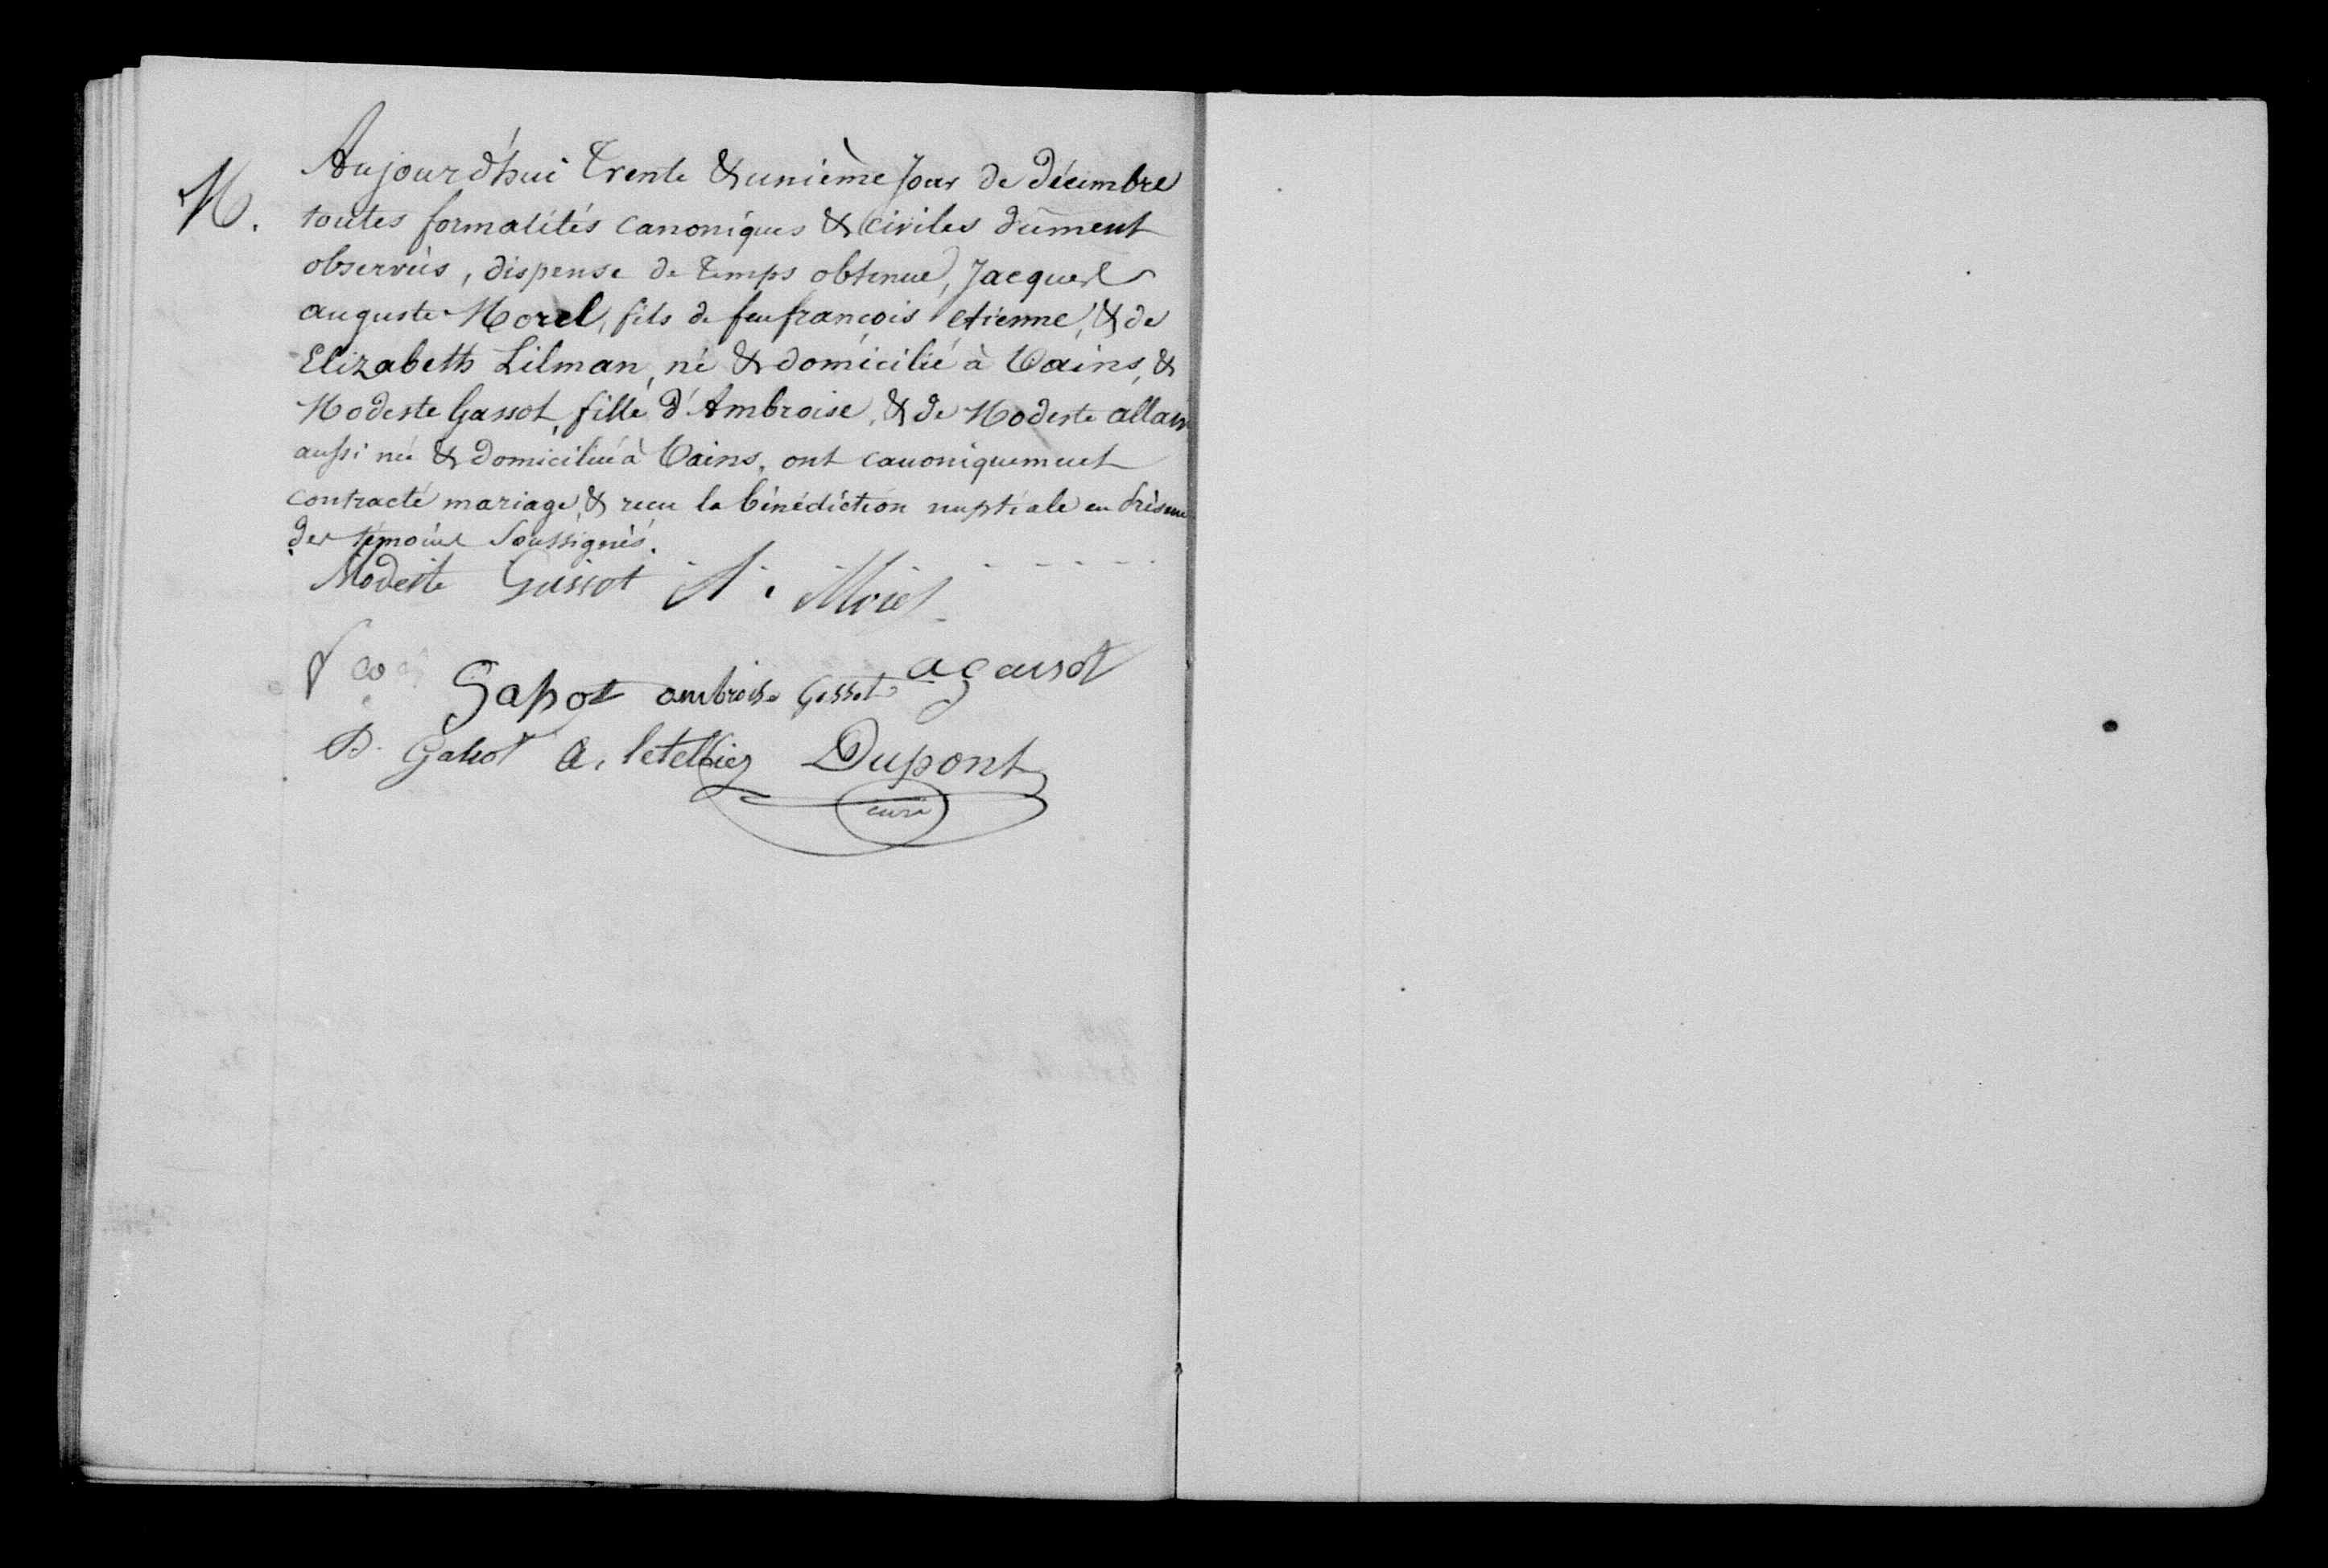 M.
Aujourd'hui Trente & unième Jour de décembre
toutes formalités canoniques & civiles dûment
observées, dispense de temps obtenue, Jacques
auguste Morel, fils de feu françois etienne, & de
Elizabeth Lilman, né & domicilié à Vains, &
Modeste Gassot, fille d'Ambroise, & de Modeste allain
aussi née & domiciliée à Vains, ont canoniquement
contracté mariage, & reçu la bénédiction nuptiale en présence
des témoins Soussignés.
Modeste Gassot A. Morel
Gassot ambroise Gassot a gassot
Gassot A. letellier Dupont
curé